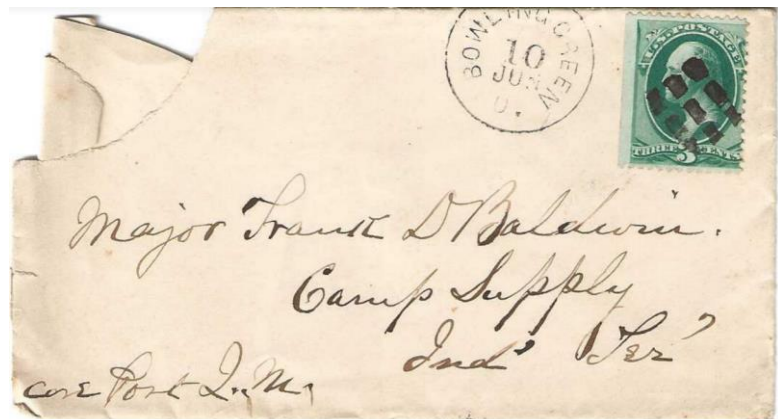 BOWLING GREEN
10
JUN
O.
U.S. POSTAGE
THREE 3 CENTS
Major Frank D Baldwin.
Camp Supply
Ind' Ter'
care Post Q.M.